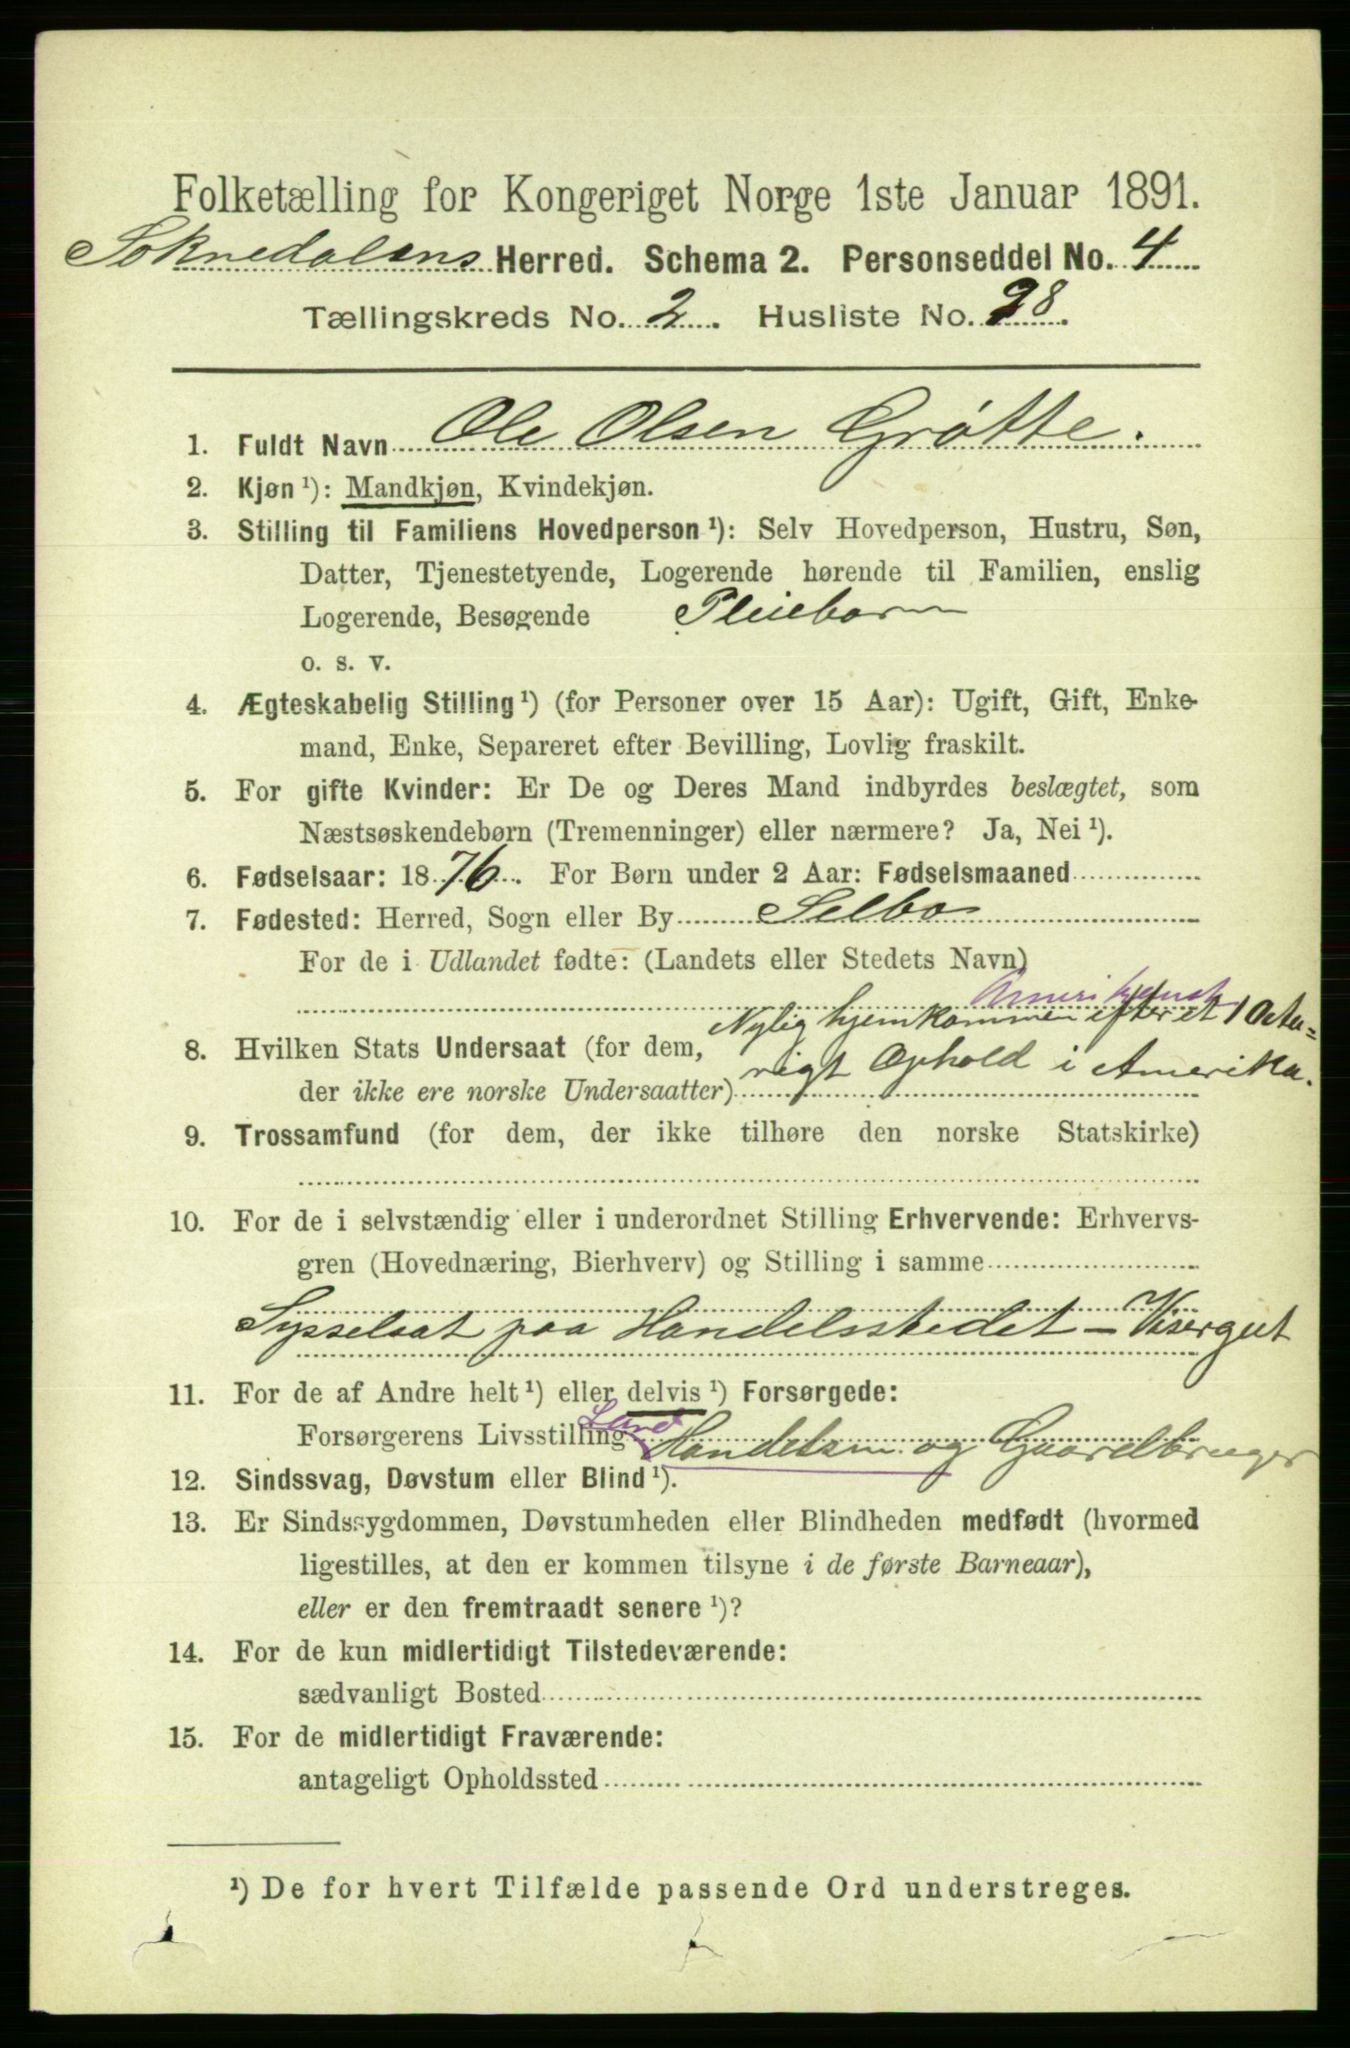 Folketælling for Kongeriget Norge 1ste Januar 1891.
Soknedalens Herred. Schema 2. Personseddel No. 4
Tællingskreds No. 2. Husliste No. 28.
1. Fuldt Navn Ole Olsen Grøtte.
2. Kjøn ¹): Mandkjøn, Kvindekjøn.
3. Stilling til Familiens Hovedperson ¹): Selv Hovedperson, Hustru, Søn,
Datter, Tjenestetyende, Logerende hørende til Familien, enslig
Logerende, Besøgende Pleiebarn
o. s. v.
4. Ægteskabelig Stilling ¹) (for Personer over 15 Aar): Ugift, Gift, Enke-
mand, Enke, Separeret efter Bevilling, Lovlig fraskilt.
5. For gifte Kvinder: Er De og Deres Mand indbyrdes beslægtet, som
Næstsøskendebørn (Tremenninger) eller nærmere? Ja, Nei ¹).
6. Fødselsaar: 1876. For Børn under 2 Aar: Fødselsmaaned
7. Fødested: Herred, Sogn eller By Selbo
For de i Udlandet fødte: (Landets eller Stedets Navn)
Amerikansk
Nylig hjemkommen efter et 1 Octa-
8. Hvilken Stats Undersaat (for dem,
rigt Ophold i Amerika.
der ikke ere norske Undersaatter)
9. Trossamfund (for dem, der ikke tilhøre den norske Statskirke)
10. For de i selvstændig eller i underordnet Stilling Erhvervende: Erhvervs-
gren (Hovednæring, Bierhverv) og Stilling i samme
Sysselsat paa Handelsstedet - Visergut
11. For de af Andre helt ¹) eller delvis ¹) Forsørgede:
Land
Forsørgerens Livsstilling Handelsm. og Gaardbruger
12. Sindssvag, Døvstum eller Blind ¹).
13. Er Sindssygdommen, Døvstumheden eller Blindheden medfødt (hvormed
ligestilles, at den er kommen tilsyne i de første Barneaar),
eller er den fremtraadt senere ¹)?
14. For de kun midlertidigt Tilstedeværende:
sædvanligt Bosted
15. For de midlertidigt Fraværende:
antageligt Opholdssted
¹) De for hvert Tilfælde passende Ord understreges.